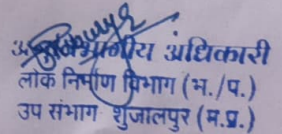 अनुविभागीय अधिकारी
लोक निर्माण विभाग (भ./प.)
उप संभाग शुजालपुर (म.प्र.)